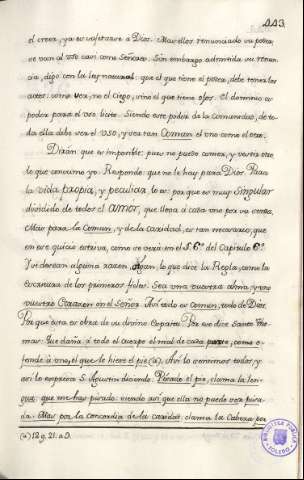 443
el creer, ya es sujetarse à Dios. Mas ellos renunciado su poder,
se van al uso casi como Señores. Sin embargo admitida su renun-
cia, digo con la ley natural: que el que tiene el poder, debe tener los
actos: como ver, no el Ciego, sino el que tiene ojos. El dominio es
poder para el uso licito. Siendo este poder de la comunidad, de to-
da ella debe ser el uso, y sea tan Comun el uno como el otro.
Dirán que es imposible: pues no puedo comer, y vestir otro
lo que consumo yo. Respondo: que no le hay para Dios. Para
la vida propia, y peculiar lo es: por que es muy singular
dividido de todos el amor, que lleva à cada uno por su
Mas para la Comun, y de la caridad, es tan necesario, que
en eso quiso estuviese, como se verá en el S. 6º del Capitulo 6º
alguna razon. Oyan, lo que dice la Regla, como la
Escritura de los primeros fieles. Sea una vuestra alma, y uno
vuestro Corazon en el Señor. Asi todo es comun, todo de Dios.
Por que esta es obra de su divino Por eso dice Santo Tho-
mas: Que daña à todo el cuerpo el mal de cada parte; como o-
fende à uno, el que le hiere el pie (a). Asi lo sentimos todos, y
asi lo expresa S. Agustin diciendo. Pisado el pie, clama la len-
gua: que me has pisado: siendo asi que ella no puede ser pisa-
da. Mas por la concordia de la caridad: clama la Cabeza por
(a) 12 q. 21. a.
BIBLIOTECA PUBLICA
TOLEDO